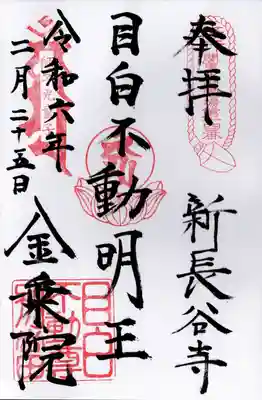 奉拝
新長谷寺
目白不動明王
令和六年
二月二十五日
金乗院